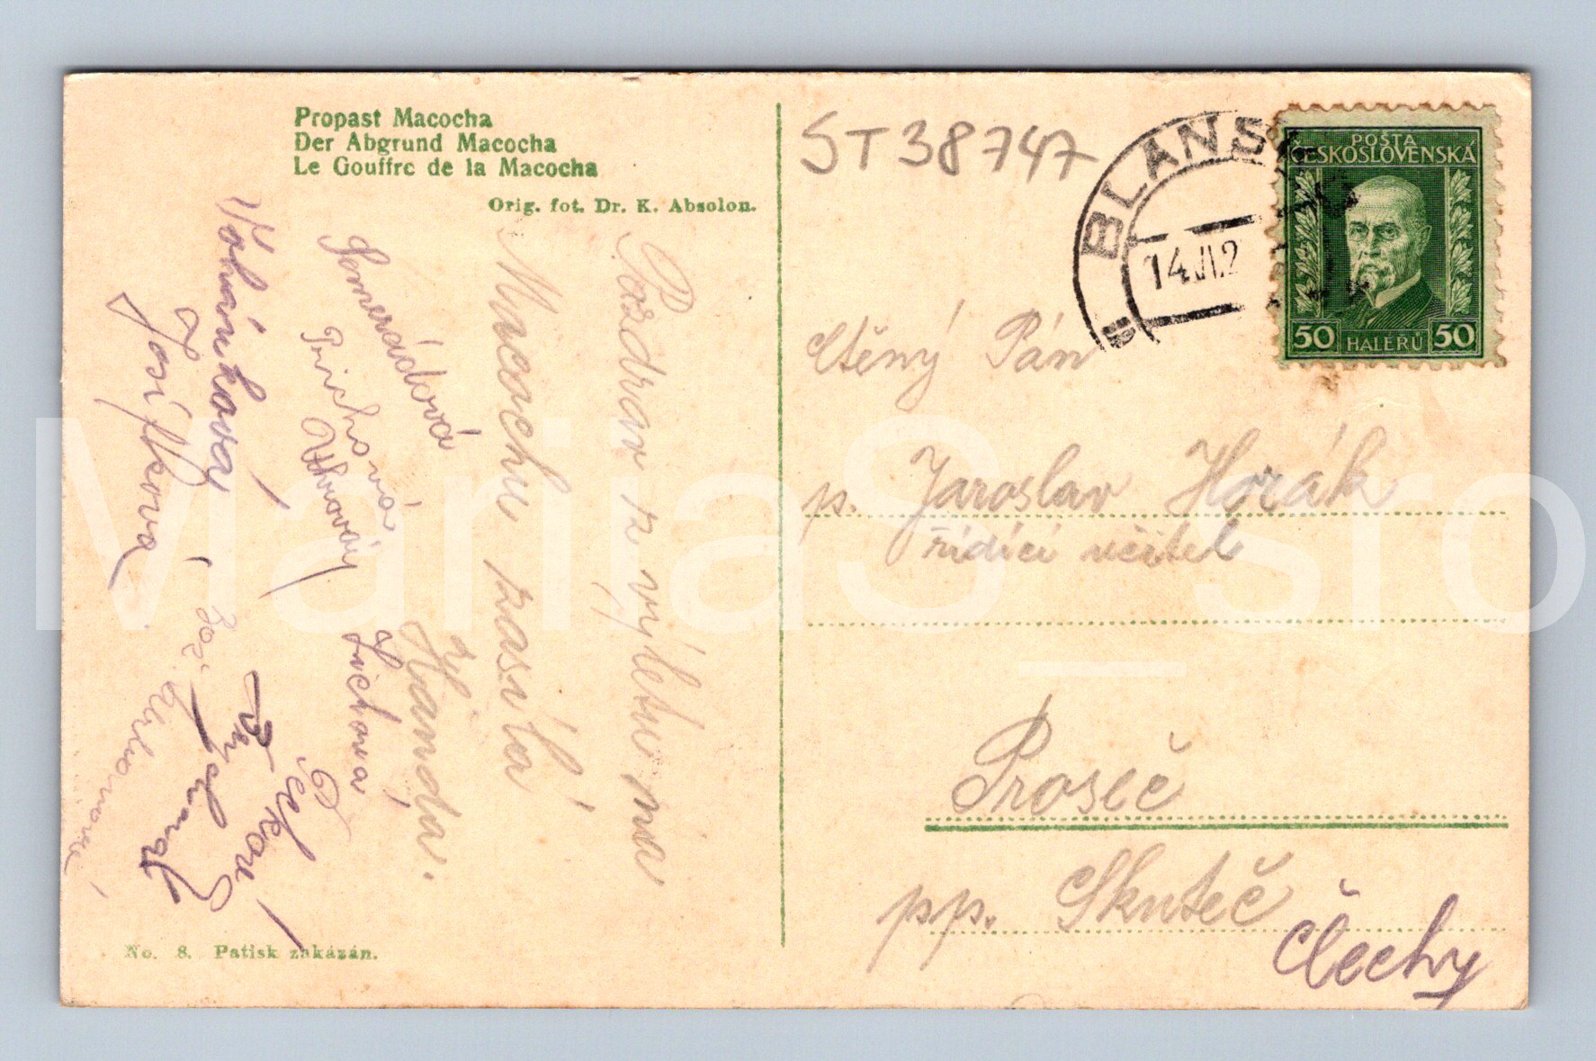 Propast Macocha
Der Abgrund Macocha
Le Gouffre de la Macocha
Orig. fot. Dr. K. Absolon.
Pozdrav z výletu na
Macochu zasílá
Handa.
Somerádlová
Lichová
Josífkova
No. 8. Patisk zakázán.
ST 38747
BLANSK
14.VI.2
POŠTA
ČESKOSLOVENSKÁ
50 HALÉŘŮ 50
Ctěný Pán
p. Jaroslav Horák
řídící učitel
Proseč
pp. Skuteč
Čechy
MarijaS_sro